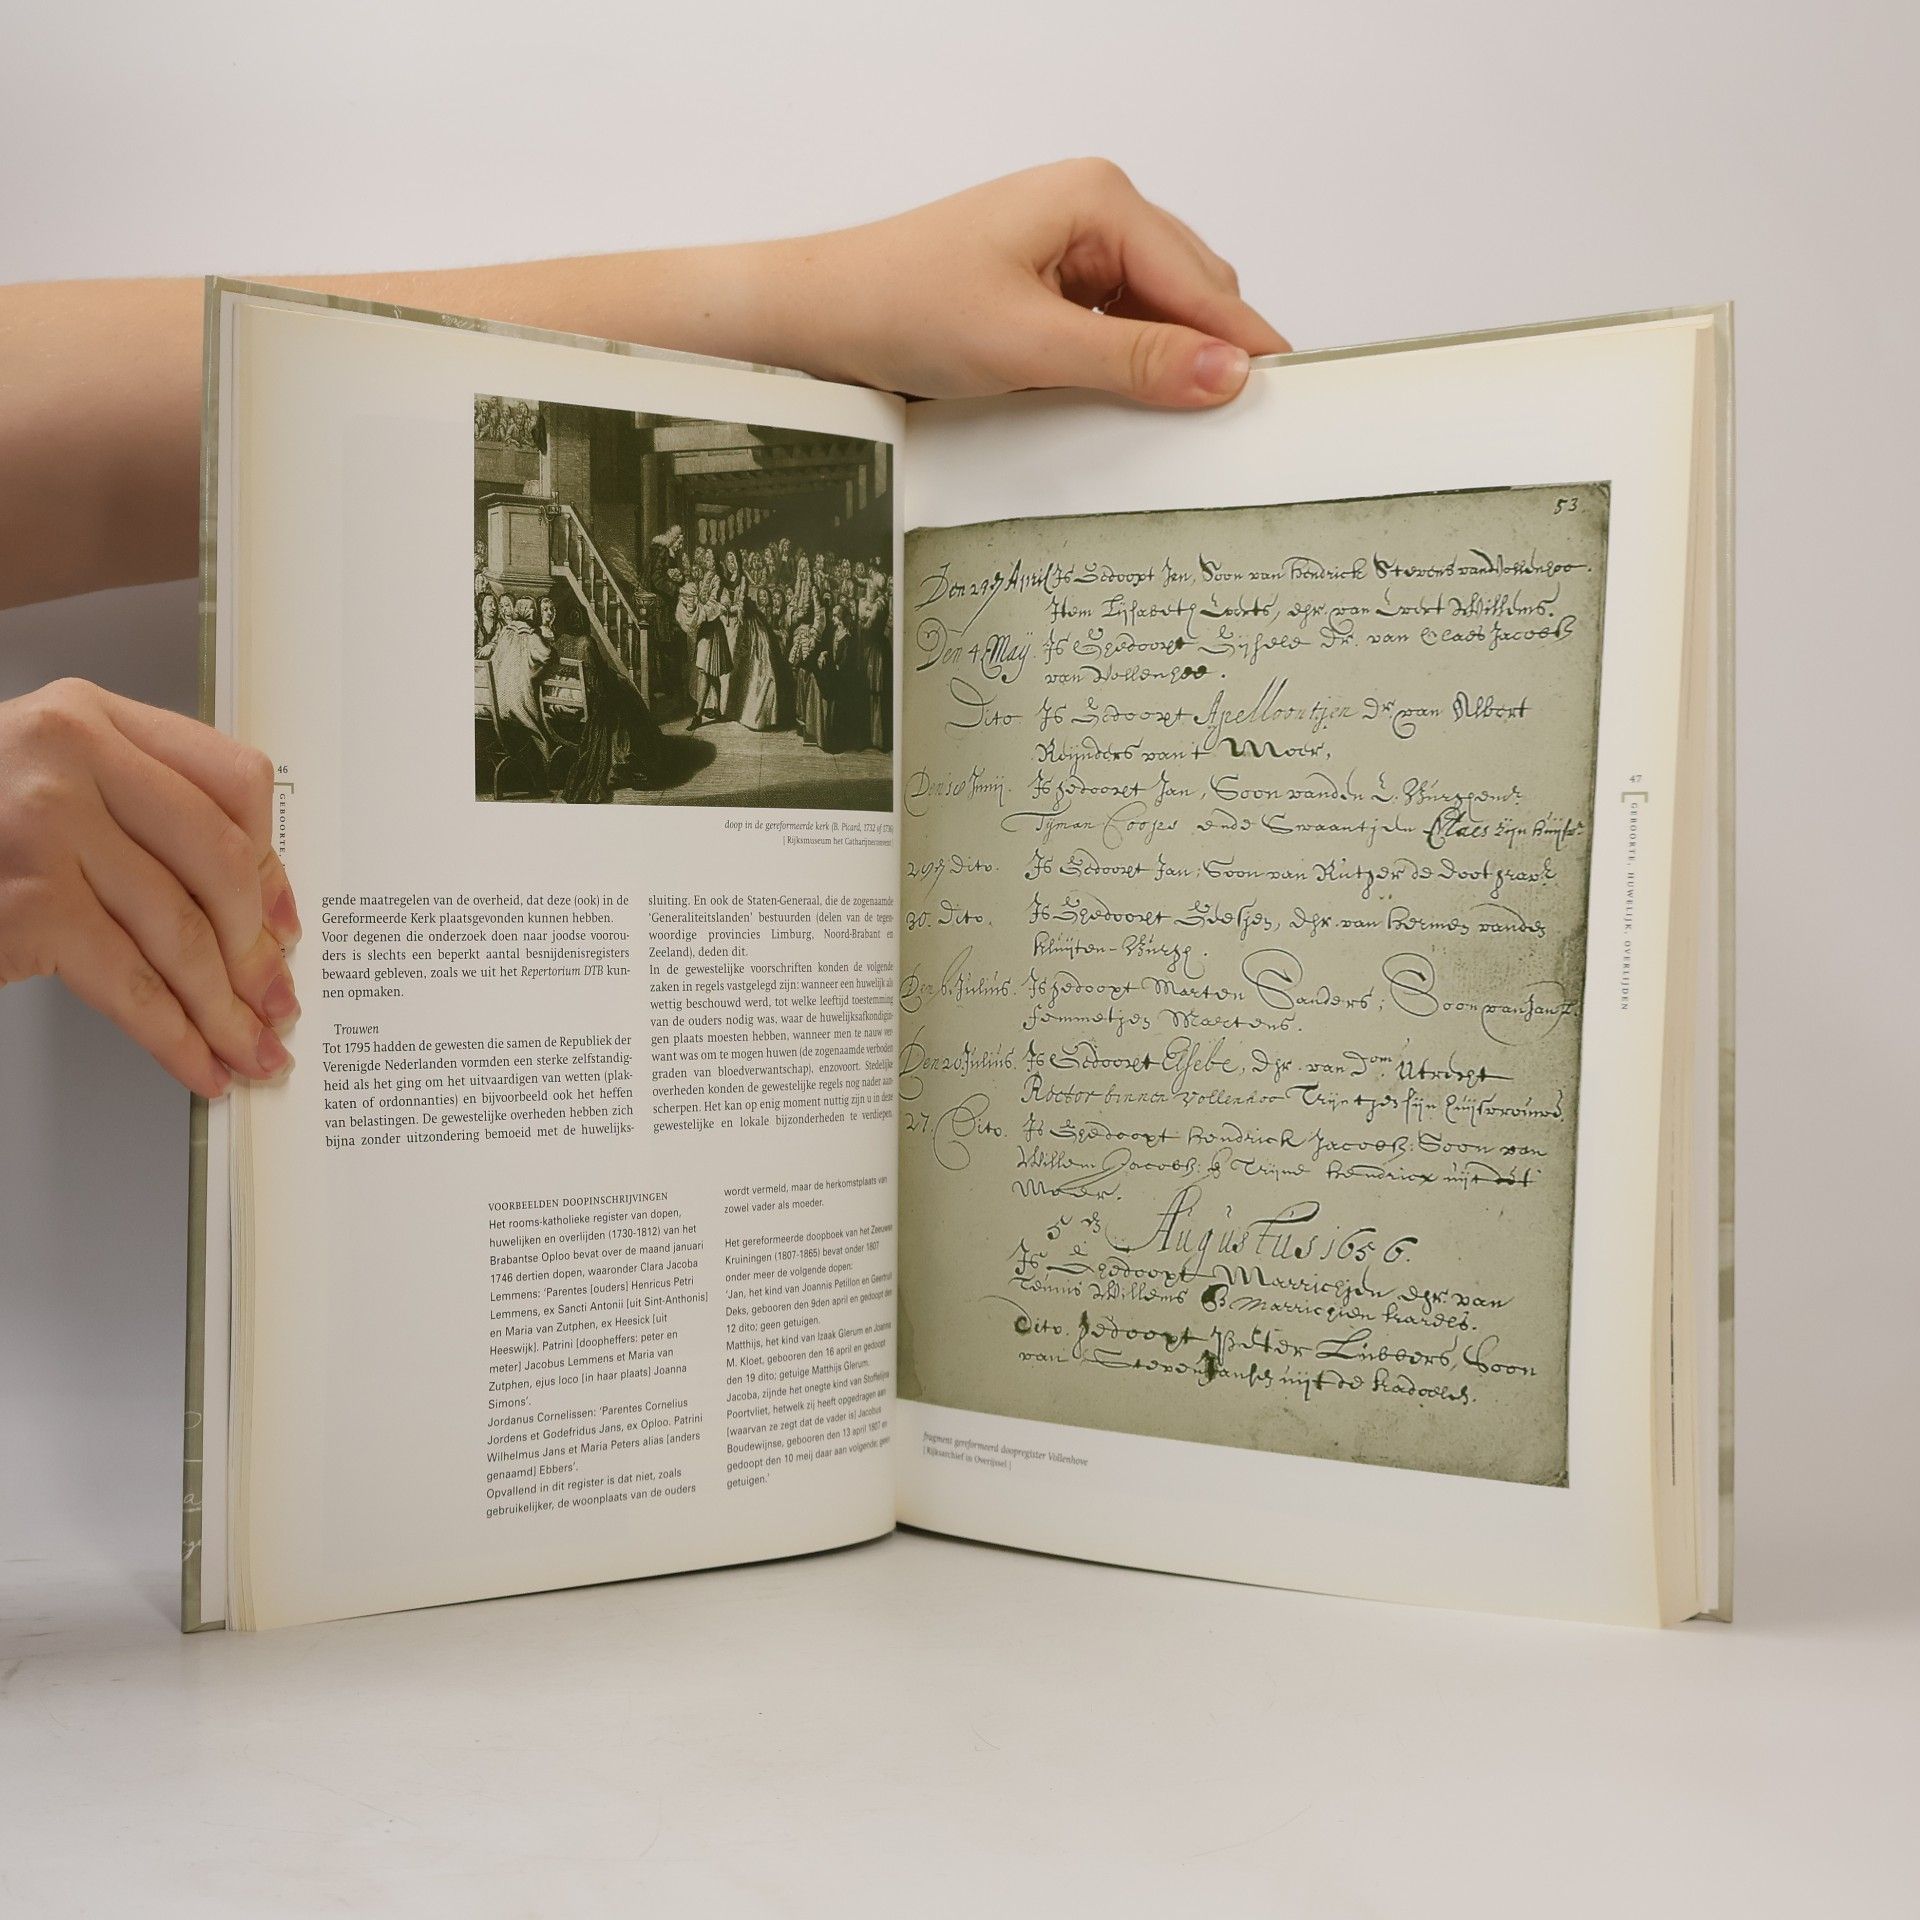 doop in de gereformeerde kerk (B. Picard, 1732 of 1736)
[ Rijksmuseum het Catharijneconvent ]
46
GEBOORTE,
gende maatregelen van de overheid, dat deze (ook) in de
Gereformeerde Kerk plaatsgevonden kunnen hebben.
Voor degenen die onderzoek doen naar joodse voorou-
ders is slechts een beperkt aantal besnijdenisregisters
bewaard gebleven, zoals we uit het Repertorium DTB kun-
nen opmaken.
Trouwen
Tot 1795 hadden de gewesten die samen de Republiek der
Verenigde Nederlanden vormden een sterke zelfstandig-
heid als het ging om het uitvaardigen van wetten (plak-
katen of ordonnanties) en bijvoorbeeld ook het heffen
van belastingen. De gewestelijke overheden hebben zich
bijna zonder uitzondering bemoeid met de huwelijks-
sluiting. En ook de Staten-Generaal, die de zogenaamde
'Generaliteitslanden' bestuurden (delen van de tegen-
woordige provincies Limburg, Noord-Brabant en
Zeeland), deden dit.
In de gewestelijke voorschriften konden de volgende
zaken in regels vastgelegd zijn: wanneer een huwelijk als
wettig beschouwd werd, tot welke leeftijd toestemming
van de ouders nodig was, waar de huwelijksafkondigin-
gen plaats moesten hebben, wanneer men te nauw ver-
want was om te mogen huwen (de zogenaamde verboden
graden van bloedverwantschap), enzovoort. Stedelijke
overheden konden de gewestelijke regels nog nader aan-
scherpen. Het kan op enig moment nuttig zijn u in deze
gewestelijke en lokale bijzonderheden te verdiepen.
VOORBEELDEN DOOPINSCHRIJVINGEN
Het rooms-katholieke register van dopen,
huwelijken en overlijden (1730-1812) van het
Brabantse Oploo bevat over de maand januari
1746 dertien dopen, waaronder Clara Jacoba
Lemmens: 'Parentes [ouders] Henricus Petri
Lemmens, ex Sancti Antonii [uit Sint-Anthonis]
en Maria van Zutphen, ex Heesick [uit
Heeswijk]. Patrini [doopheffers: peter en
meter] Jacobus Lemmens et Maria van
Zutphen, ejus loco [in haar plaats] Joanna
Simons'.
Jordanus Cornelissen: 'Parentes Cornelius
Jordens et Godefridus Jans, ex Oploo. Patrini
Wilhelmus Jans et Maria Peters alias [anders
genaamd] Ebbers'.
Opvallend in dit register is dat niet, zoals
gebruikelijker, de woonplaats van de ouders
wordt vermeld, maar de herkomstplaats van
zowel vader als moeder.
Het gereformeerde doopboek van het Zeeuwse
Kruiningen (1807-1865) bevat onder 1807
onder meer de volgende dopen:
'Jan, het kind van Joannis Petillon en Geertruit
Deks, gebooren den 9den april en gedoopt den
12 dito; geen getuigen.
Matthijs, het kind van Izaak Glerum en Joanna
M. Kloet, gebooren den 16 april en gedoopt
den 19 dito; getuige Matthijs Glerum.
Jacoba, zijnde het onegte kind van Stoffelijna
Poortvliet, hetwelk zij heeft opgedragen aan
[waarvan ze zegt dat de vader is] Jacobus
Boudewijnse, gebooren den 13 april 1807 en
gedoopt den 10 meij daar aan volgende; geen
getuigen.'
53
Den 29 April Is Gedoopt Jan, Soon van Hendrick Stevens van Vollenhoe.
Item Lijsabeth Everts, dhr. van Evert Willems.
Den 4 Maij. Is Gedoopt Gijsele dr. van Claes Jacobs
van Vollenhoe.
Dito. Is Gedoopt Apelloontjen dr. van Albert
Reijnders van 't Moer.
Junij. Is gedoopt Jan, Soon van den
Tijman Coops ende Swaantjen Claes zijn
29 dito. Is Gedoopt Jan, Soon van Rutger de
30. Dito. Is Gedoopt dhr. van Hermen vander
Kluijten-
Den 6. Julius. Is gedoopt Marten Sanders, Soon van Jan
Femmetjen Martens.
Den 20. Julius. Is Gedoopt Elsebe, dhr. van Dom. Utrecht
Rector binnen Vollenhoe Trijntjen sijn huijsvrouwe.
27. Dito. Is Gedoopt Hendrick Jacobs: Soon van
Willem Jacobs: & Trijne Hendricx uijt dét
Moer.
5 Augustus 1656.
Is Gedoopt Marrichjen dhr. van
Teunis Willems & Marrichjen Kardes.
Dito. gedoopt Peter Lubbers, Soon
van Steven Jansen uijt de Kadoelen.
fragment gereformeerd doopregister Vollenhove
[ Rijksarchief in Overijssel ]
47
GEBOORTE, HUWELIJK, OVERLIJDEN